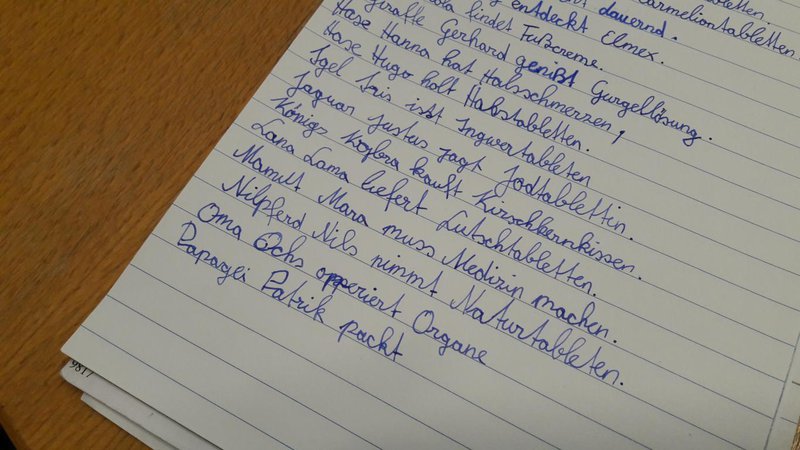 dauernd. Carmeliontabletten.
entdeckt Elmex.
findet Fußcreme.
Giraffe Gerhard genißt Gurgellösung.
Hase Hanna hat Halsschmerzen,
Hase Hugo holt Halstabletten.
Igel Iris isst Ingwertableten
Jaguar Justus jagt Jodtablettin.
Königs Kobra kauft Kirschkernkissen.
Lana Lama liefert Lutschtabletten.
Mamut Mara muss Medizin machen.
Nilpferd Nils nimmt Naturtableten.
Oma Ochs opperiert Organe
Papagei Patrik packt
9817